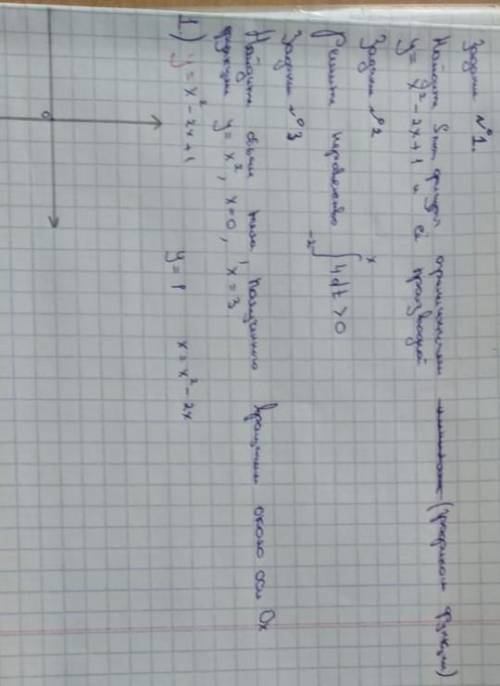 Задача №1.
Найдите S фигуры ограниченной (графиком функции)
y = x² - 2x + 1 и её производной
Задача №2
Решите неравенство ∫₋₂ˣ 4dt > 0
Задача №3
Найдите объем тела, полученного вращением около оси Ox
функции y = x², x = 0, x = 3
1) y = x² - 2x + 1 y = 1 x = x² - 2x
0